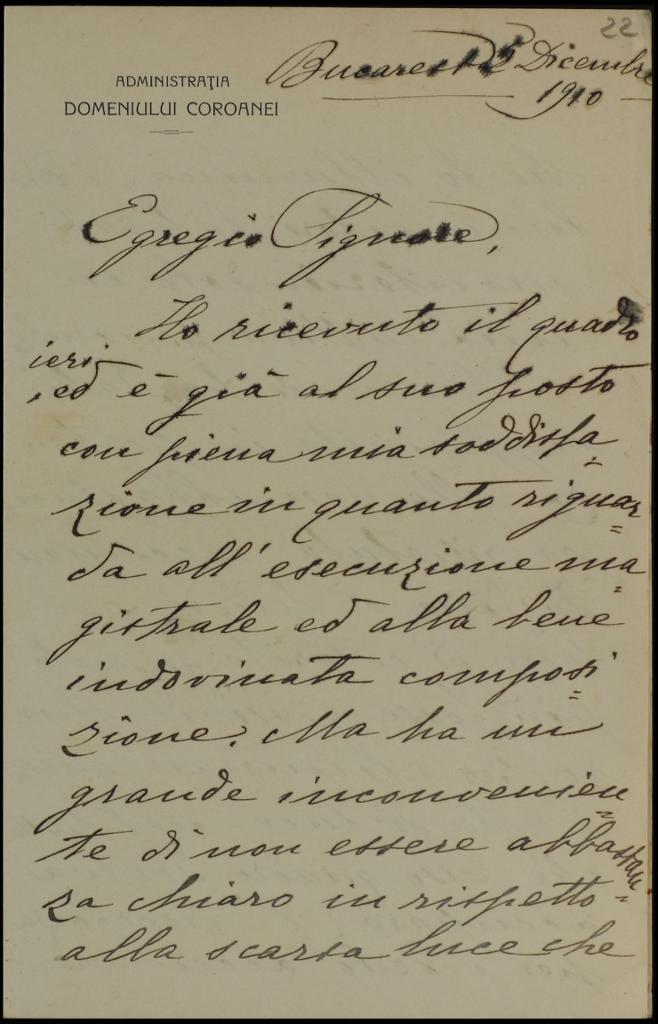 22
ADMINISTRAŢIA
DOMENIULUI COROANEI
Bucarest Dicembre
1910
Egregio Signore,
Ho ricevuto il quadro
ieri
, ed è già al suo posto
con piena mia soddisfa
zione in quanto riguar
da all' esecuzione ma
gistrale ed alla bene
indovinata composi
zione. Ma ha un
grande inconvenien
te di non essere abbastan
za chiaro in rispetto
alla scarsa luce che